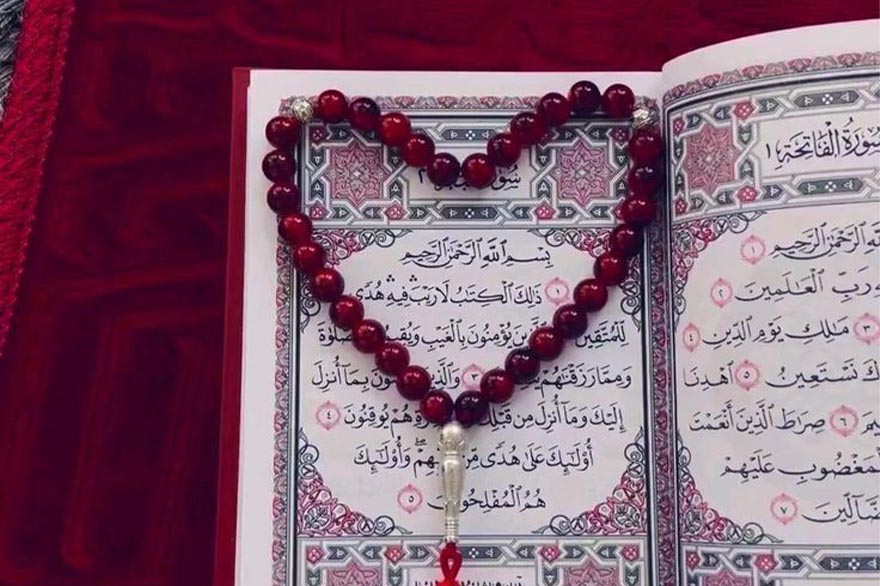 سُورَةُ الْفَاتِحَةِ ١
ٱللَّهِ ٱلرَّحْمَٰنِ ٱلرَّحِيمِ ١
رَبِّ ٱلْعَٰلَمِينَ ٢
٣ مَٰلِكِ يَوْمِ ٱلدِّينِ ٤
نَسْتَعِينُ ٥ ٱهْدِنَا
٦ صِرَٰطَ ٱلَّذِينَ أَنْعَمْتَ
ٱلْمَغْضُوبِ عَلَيْهِمْ
ٱلضَّآلِّينَ ٧
سُورَةُ ٢
بِسْمِ ٱللَّهِ ٱلرَّحْمَٰنِ ٱلرَّحِيمِ
١ ذَٰلِكَ ٱلْكِتَٰبُ لَا رَيْبَ ۛ فِيهِ ۛ هُدًى
لِّلْمُتَّقِينَ يُؤْمِنُونَ بِٱلْغَيْبِ
وَمِمَّا رَزَقْنَٰهُمْ ٣ وَٱلَّذِينَ بِمَآ أُنزِلَ
إِلَيْكَ وَمَآ أُنزِلَ مِن قَبْلِكَ هُمْ يُوقِنُونَ ٤
أُو۟لَٰٓئِكَ عَلَىٰ هُدًى مِّن وَأُو۟لَٰٓئِكَ
هُمُ ٱلْمُفْلِحُونَ ٥